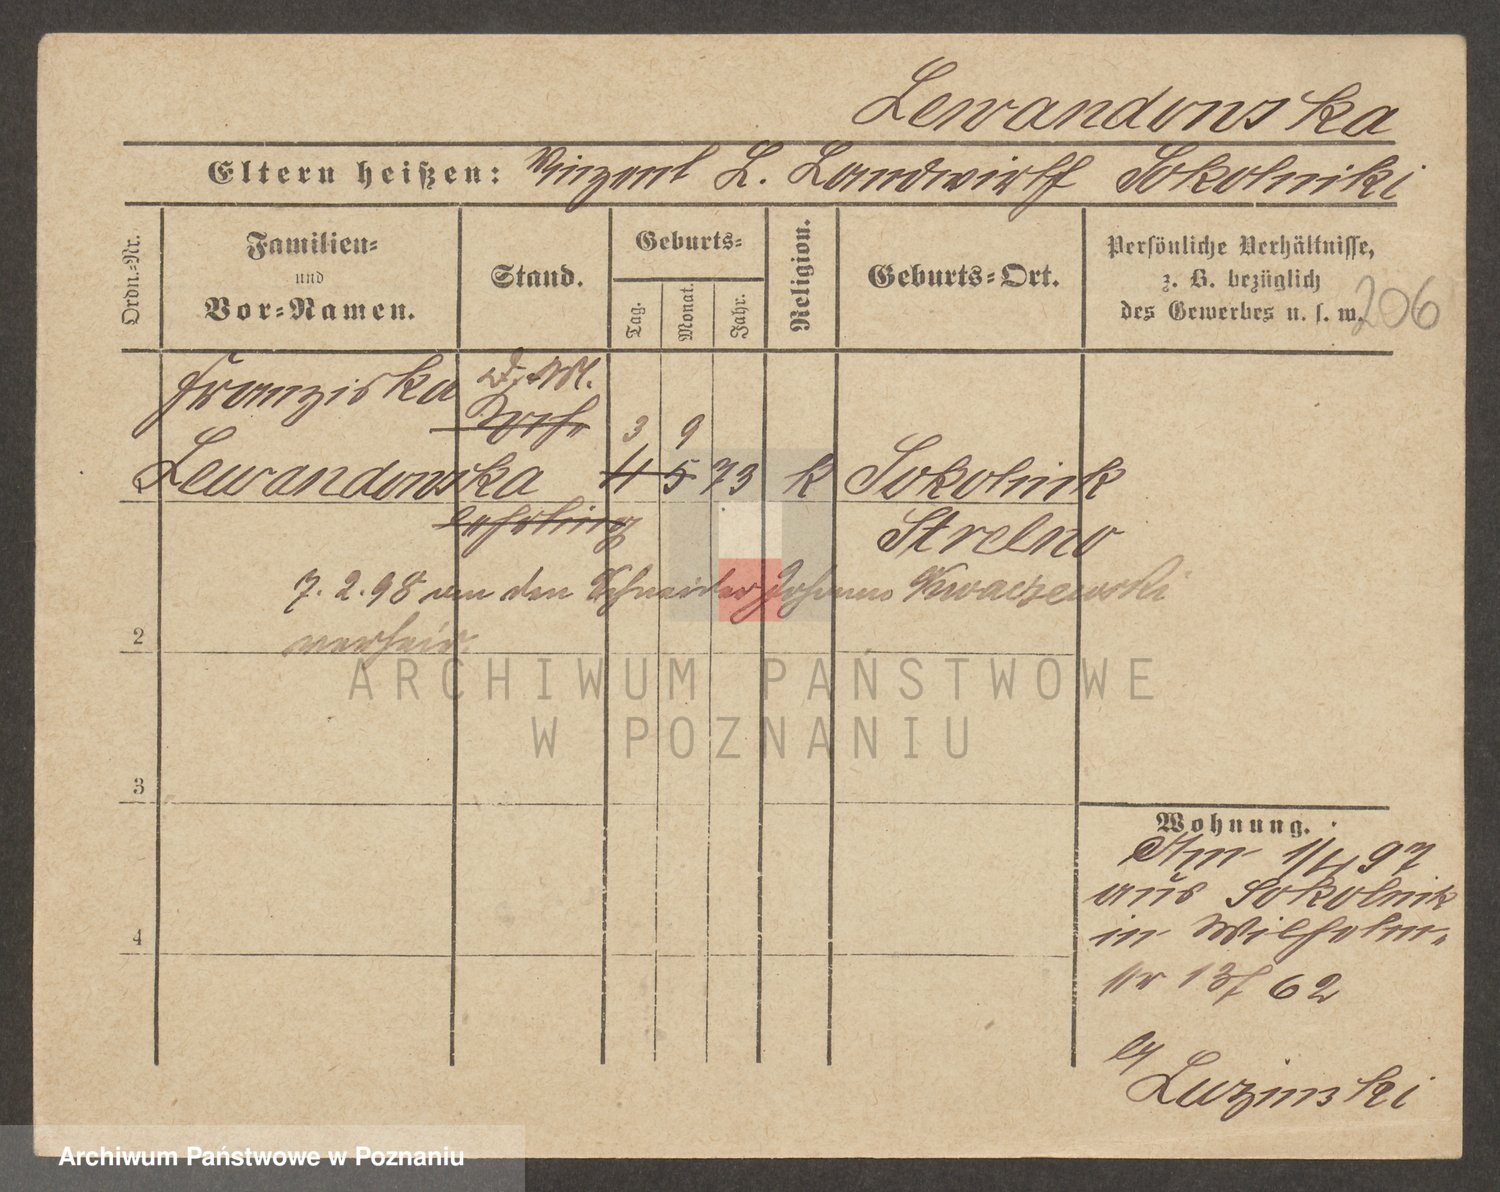 Lewandowska
Eltern heißen: Vinzent L. Landwirth Sokolniki
Ordn.-Nr.
Familien-
und
Vor-Namen.
Stand.
Geburts-
Tag.
Monat.
Jahr.
Religion.
Geburts-Ort.
Persönliche Verhältnisse,
z. B. bezüglich
des Gewerbes u. s. w.
206
Franziska
3 9
1 Lewandowska 11 5 73 k Sokolnik
lehrling Strelno
7. 2. 98 an den Schneider Johann Kwaczewski
2 verheir.
3
4
Wohnung.
Am 1/4 97
aus Sokolnik
in Wilhelm-
str 13 62
Luzinski
ARCHIWUM PAŃSTWOWE
W POZNANIU
Archiwum Państwowe w Poznaniu